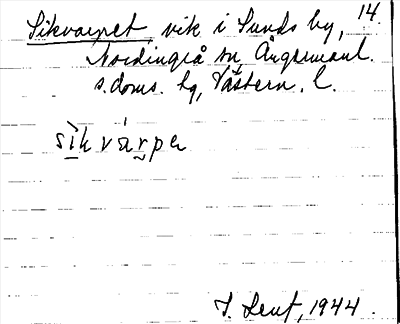 Sikvarpet vik i Sunds by, 14.
Nordingrå sn, Ångermanl.
s. doms. hg, Västern. l.
sìkvárpe
1944.